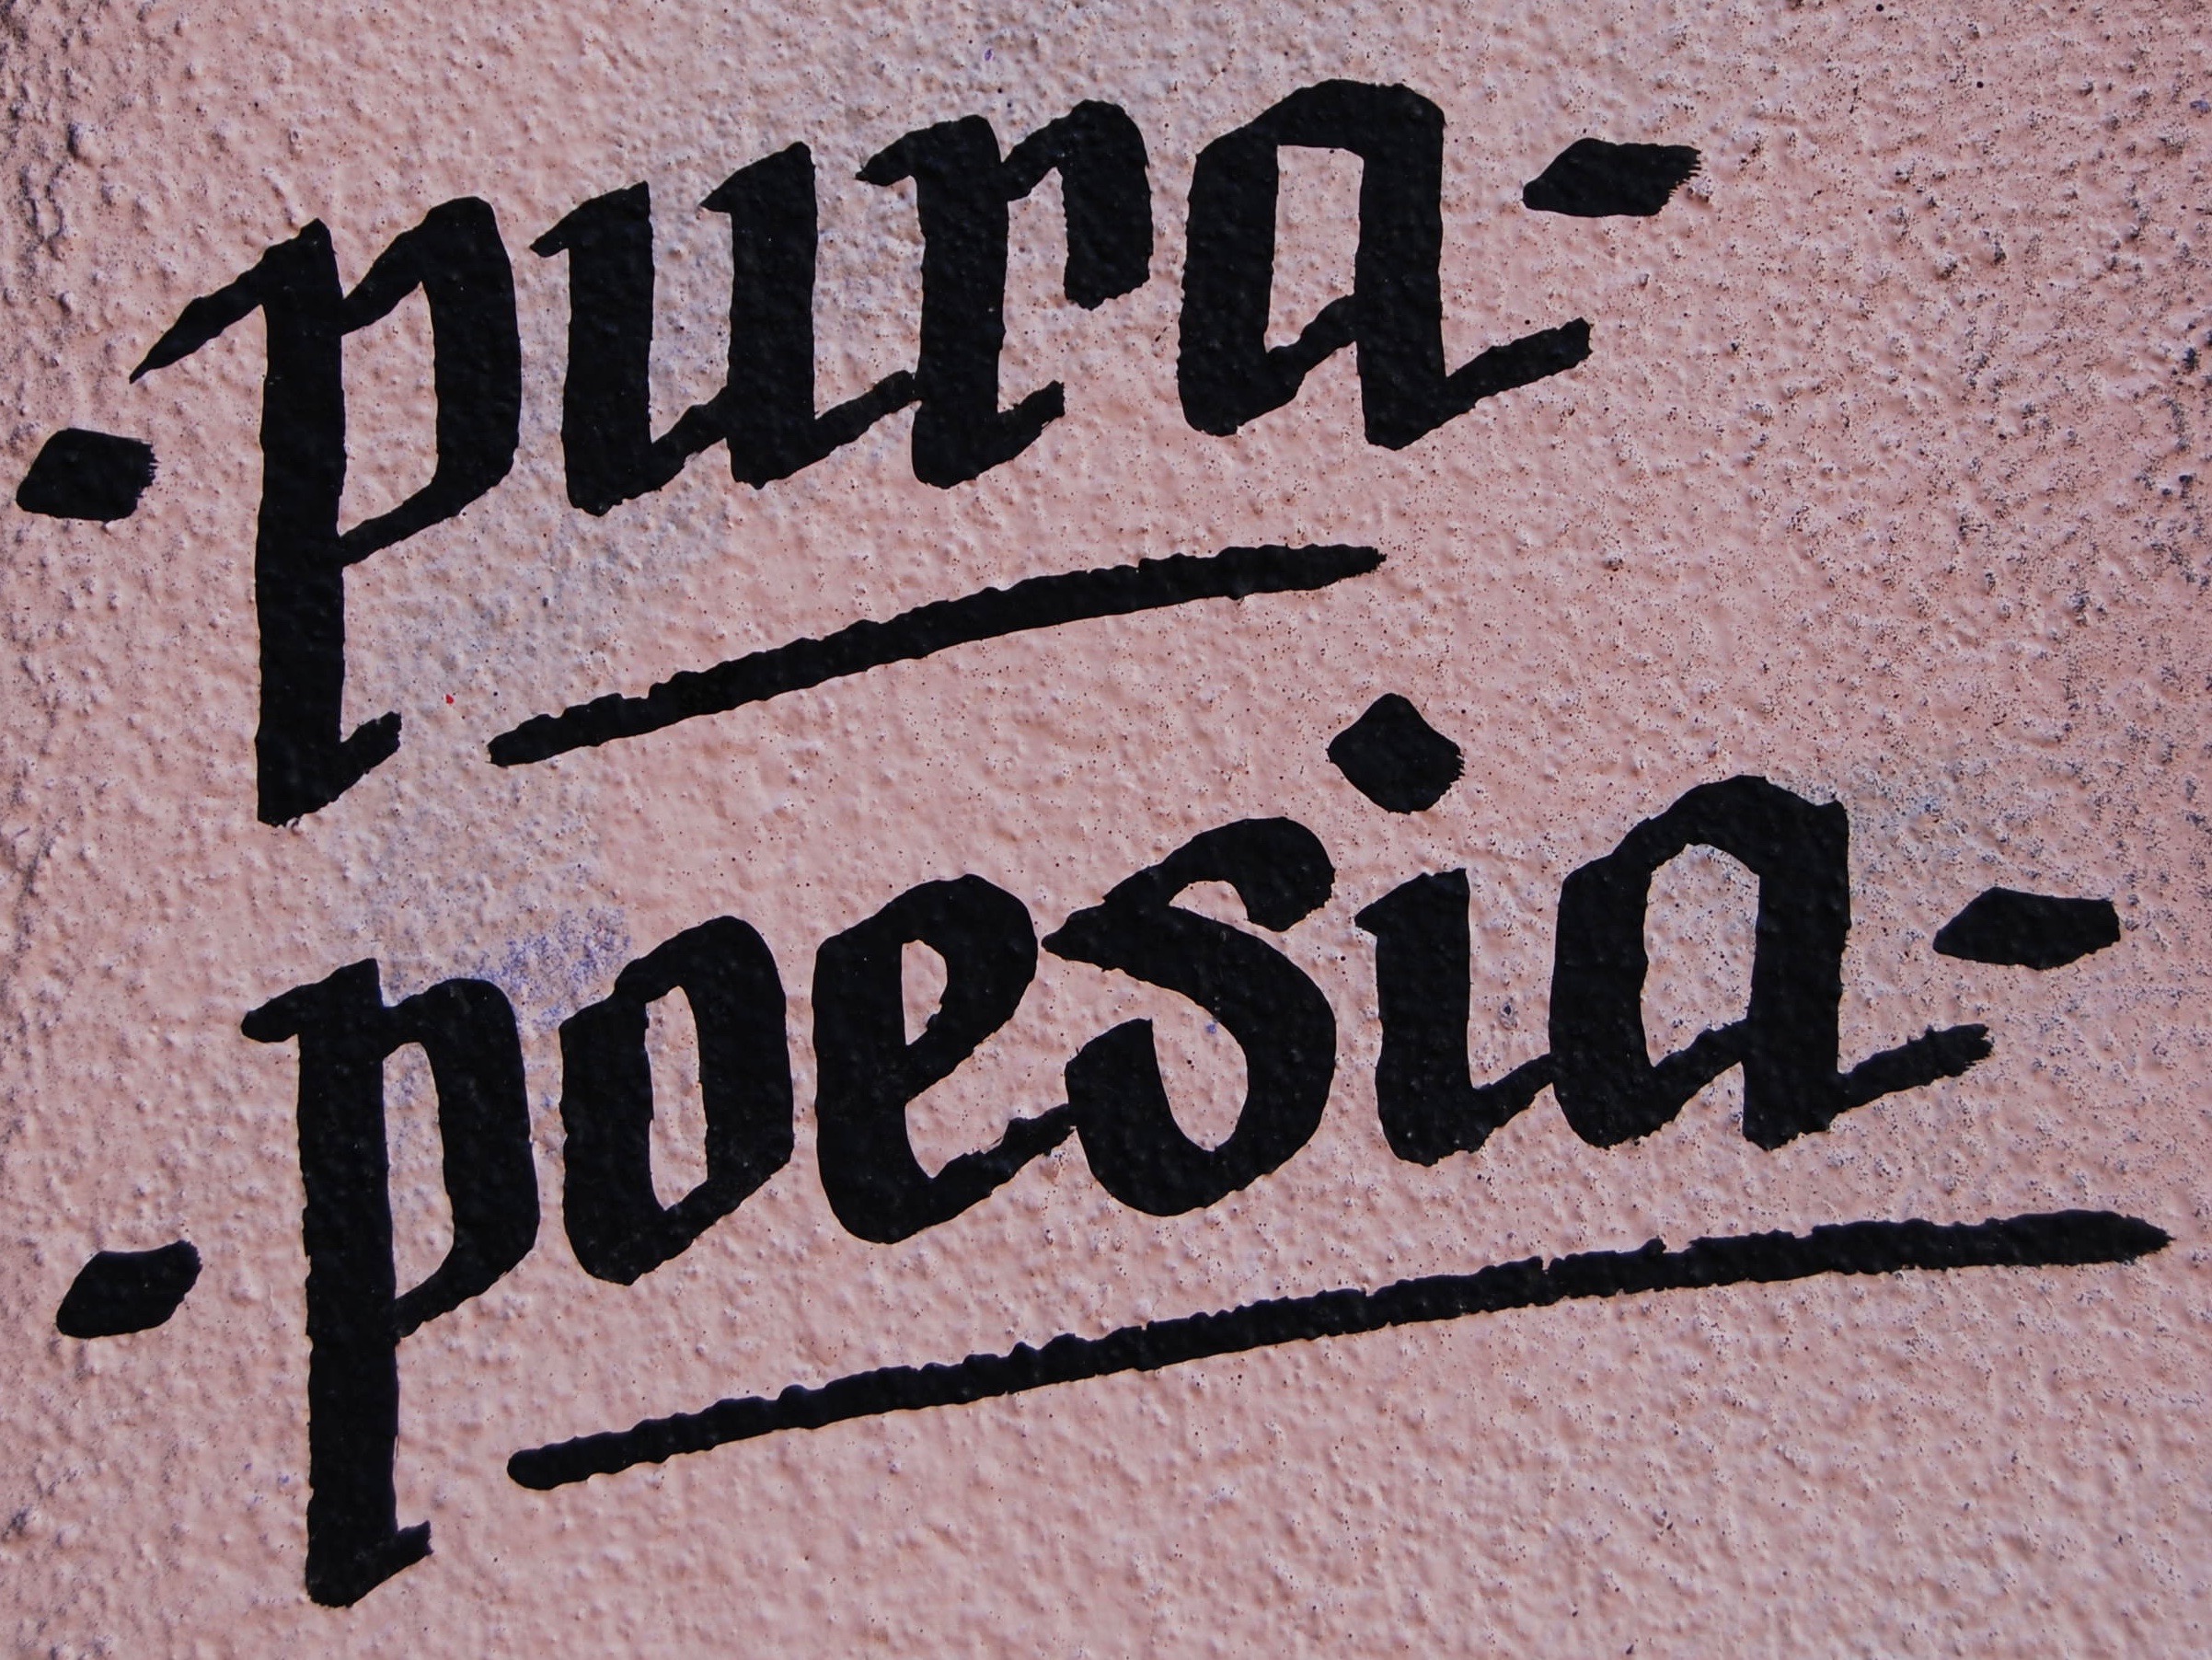 -pura-
-poesia-